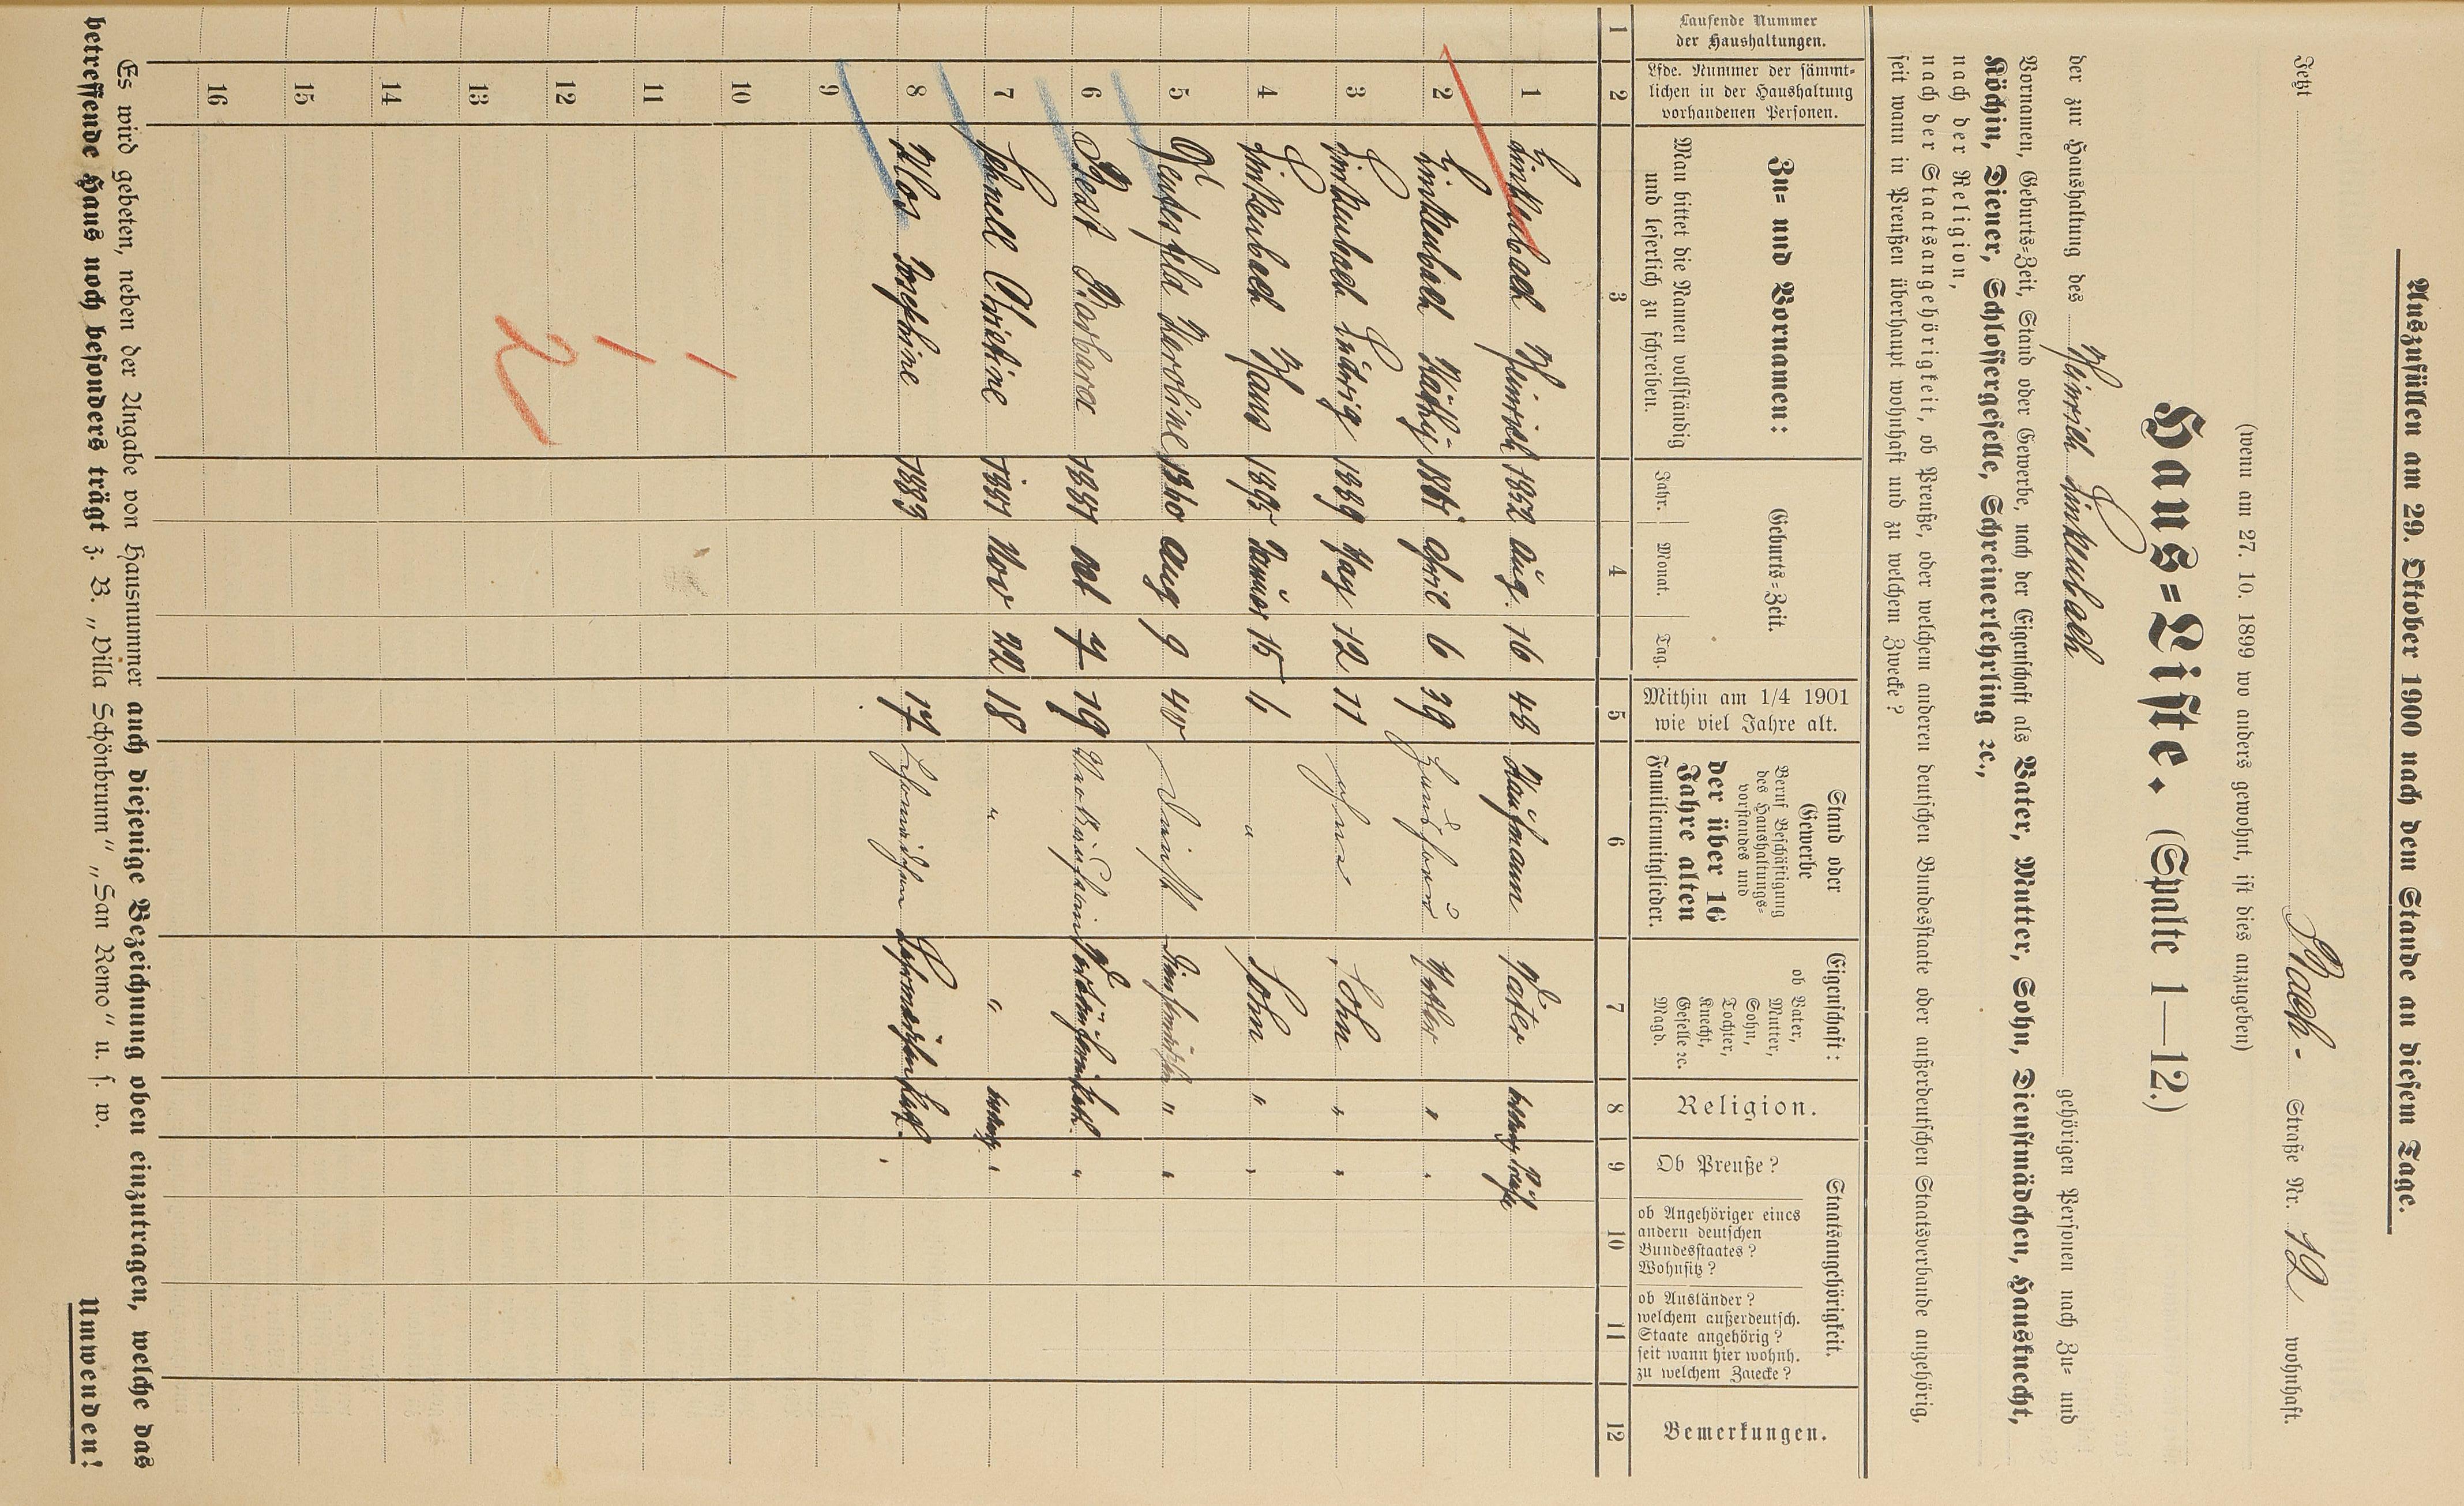 Auszufüllen am 29. Oktober 1900 nach dem Stande an diesem Tage.
Jetzt Bach- Straße Nr. 12 wohnhaft.
(wenn am 27. 10. 1899 wo anders gewohnt, ist dies anzugeben)
Haus=Liste. (Spalte 1—12.)
der zur Haushaltung des Heinrich Linkenbach gehörigen Personen nach Zu= und
Vornamen, Geburts=Zeit, Stand oder Gewerbe, nach der Eigenschaft als Vater, Mutter, Sohn, Dienstmädchen, Hausknecht,
Köchin, Diener, Schlossergeselle, Schreinerlehrling ꝛc.,
nach der Religion,
nach der Staatsangehörigkeit, ob Preuße, oder welchem anderen deutschen Bundesstaate oder außerdeutschen Staatsverbande angehörig,
seit wann in Preußen überhaupt wohnhaft und zu welchem Zwecke?
Laufende Nummer der Haushaltungen.
Lfde. Nummer der sämmt=lichen in der Haushaltung vorhandenen Personen.
Zu= und Vornamen:
Man bittet die Namen vollständig und leserlich zu schreiben.
Geburts=Zeit.
Jahr. Monat. Tag.
Mithin am 1/4 1901 wie viel Jahre alt.
Stand oder Gewerbe
Beruf Beschäftigung des Haushaltungs=vorstandes und
der über 16 Jahre alten Familienmitglieder.
Eigenschaft:
ob Vater, Mutter, Sohn, Tochter, Knecht, Geselle ꝛc. Magd.
Religion.
Staatsangehörigkeit.
Ob Preuße?
ob Angehöriger eines andern deutschen Bundesstaates? Wohnsitz?
ob Ausländer? welchem außerdeutsch. Staate angehörig? seit wann hier wohnh. zu welchem Zwecke?
Bemerkungen.
1 2 3 4 5 6 7 8 9 10 11 12
1 Linkenbach Heinrich 1852 Aug. 16 48 Kaufmann Vater
2 Linkenbach Käthy 1861 April 6 39 Mutter "
3 Linkenbach Ludwig 1889 May 12 11 ohne Sohn " "
4 Linkenbach Hans 1895 Januar 15 " Sohn " "
5 Karoline 1860 Aug 9 40 " "
6 Best Barbara 1881 Oct 7 19 Kath. "
7 Schnell Christine Nov 22 18 " " "
8 Klos Josephine 1883 17 Kath. "
9
10
11
12
13
14
15
16
2
Es wird gebeten, neben der Angabe von Hausnummer auch diejenige Bezeichnung oben einzutragen, welche das
betreffende Haus noch besonders trägt z. B. „Villa Schönbrunn“ „San Remo“ u. s. w.
Umwenden!